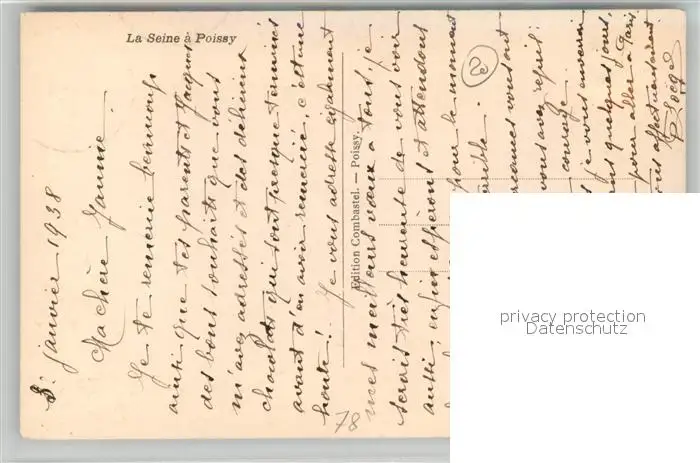 La Seine à Poissy
8. Janvier 1938
Ma chère Jeannine.
Je te remercie beaucoup
ainsi que tes parents et Jacques
des bons souhaits que vous
m'avez adressés et des délicieux
chocolats qui sont presque terminés
avant d'en avoir remercié, c'est une
honte! Je vous adresse également
Edition Combastel. — Poissy.
mes meilleurs vœux à tous, je
serais très heureuse de vous voir
aussi, enfin espérons et attendons
pour le moment
vous sont
vous avez
courage.
je vous enverrai
quelques jours,
pour aller à Paris.
vous affectueusement
78
privacy protection
Datenschutz